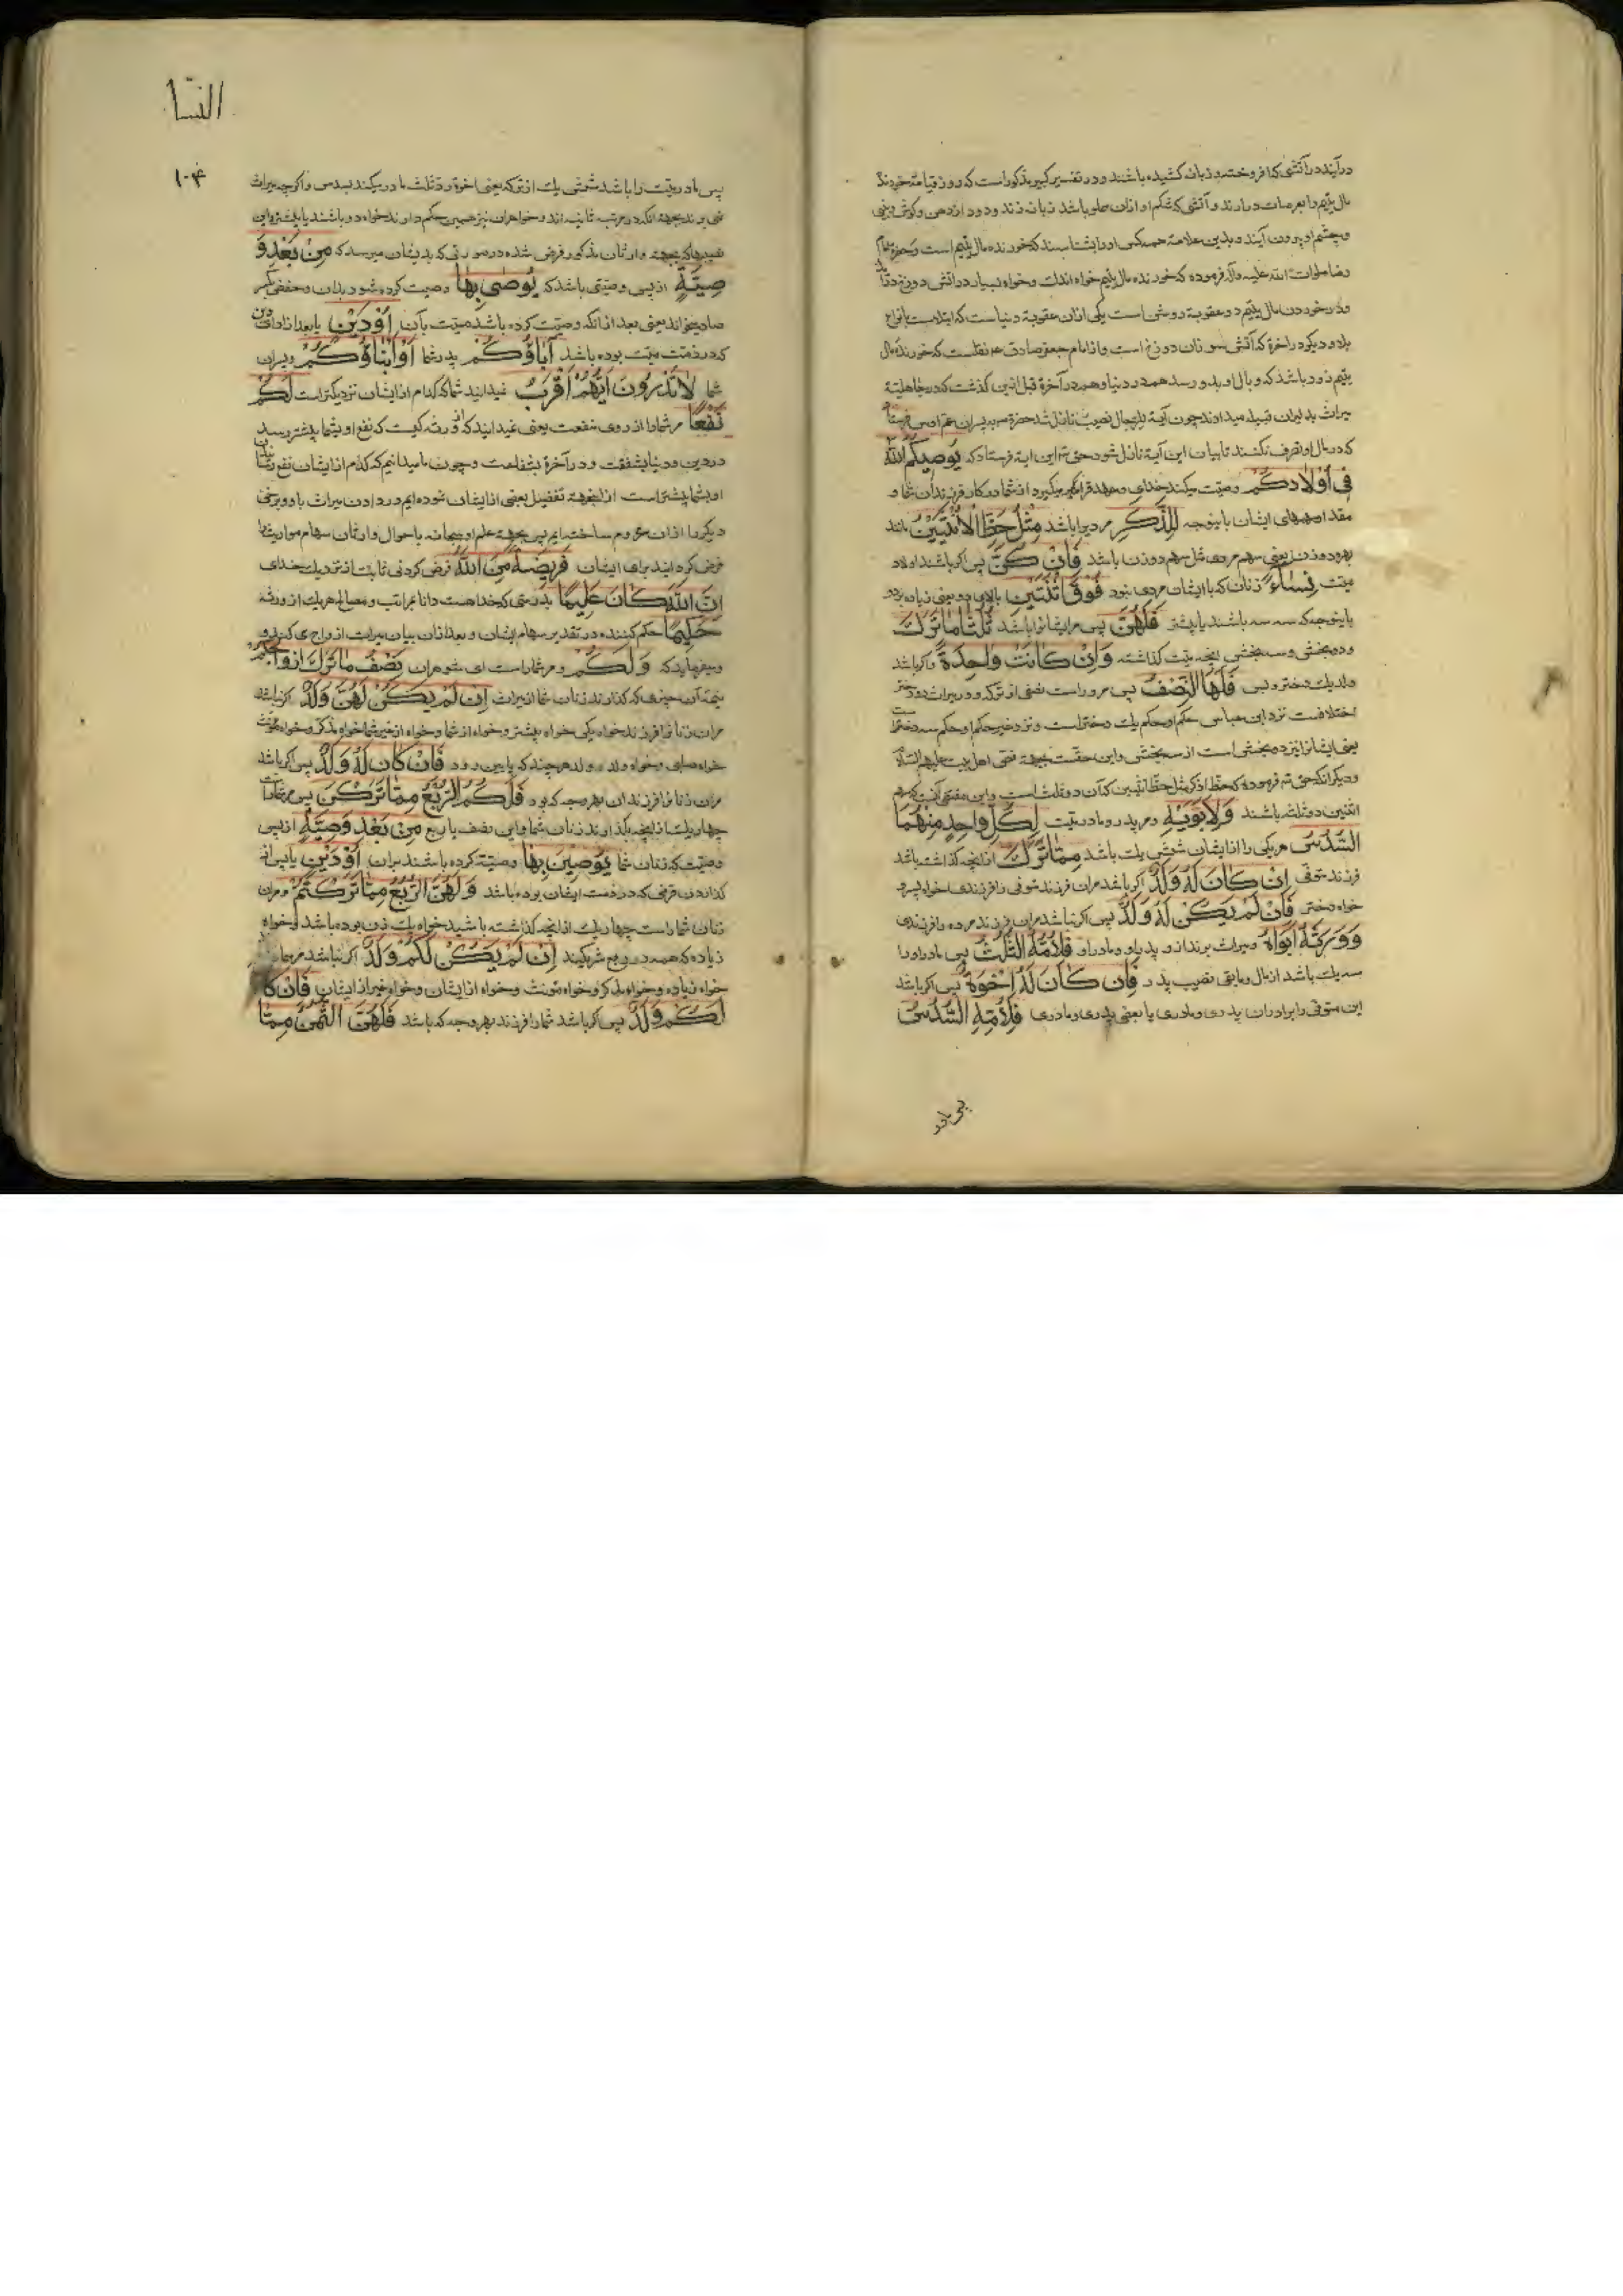 در آیند در آتشی که افروخته و زبانه کشیده باشند و در تفسیر کبیر مذکور است که روز قیامة خورندهٔ
مال یتیم را بعرصات در آرند و آتشی که شکم او ازان مملو باشد زبانه زند و دود از دهن و کوش و بینی
و چشم او بیرون آیند و بدین علامة همه کس او را بشناسند که خورنده مال یتیم است و حضرة
صلوات الله علیه وآله فرموده که خورنده مال یتیم خواه اندك وخواه بسیار در آتش دوزخ در آید
ودر خوردن مال یتیم دو عقوبة روشن است یکی ازان عقوبة دنیاست که ابتلاست بانواع
بلا و دیکر در اخرة که آتش سوزان دوزخ است و از امام جعفر صادق ع م نقلست که خورندهٔ مال
یتیم زود باشد که وبال او بدو رسد هم در دنیا وهم در آخرة قبل ازین کذشت که در جاهلیة
میراث بدلیران قبیله میدادند چون آیة للرجال نصیب نازل شد حضرة
که در مال او تصرف نکنند تا بیان این آیة نازل شود حق تعـ این ایة فرستاد که یُوصِیکُمُ اللهُ
فِی أَوْلَادِکُمْ وصیّت میکند خدای وعهد فرا میکیرد از شما در کار فرزندان شما و
مقدار سهمهای ایشان باینوجه لِلذَّکَرِ مردیرا باشد مِثْلُ حَظِّ الْأُنْثَیَیْنِ مانند
بهره دو زن یعنی سهم مردی مثل سهم دو زن باشد فَإِنْ کُنَّ پس اکر باشند اولاد
میّت نِسَاءً زنان که با ایشان مردی نبود فَوْقَ اثْنَتَیْنِ بالای دو یعنی زیاده بر دو
باینوجه که سه باشند یا بیشتر فَلَهُنَّ پس مر ایشانرا باشد ثُلُثَا مَا تَرَکَ
دو بخش و سه بخش انچه میّت کذاشته وَإِنْ کَانَتْ وَاحِدَةً و اکر باشد
ولد یك دختر و بس فَلَهَا النِّصْفُ پس مر او راست نصفی از ترکه و در میراث دو دختر
اختلافست نزد ابن عباس حکم او حکم یك دختر است و نزد غیر حکم او حکم سه دختر است
یعنی ایشانرا نیز دو بخش است از سه بخش واین حقّست بجهة فتوی اهل بیت علیهم السلام
و دیکر آنکه حق تعـ فرموده که حظّ ذکر مثل حظّ انثیین که آن دو ثلث است واین مقتضی آنست که سهم
انثیین دو ثلث باشند وَلِأَبَوَیْهِ و مر پدر و مادر میّت لِکُلِّ وَاحِدٍ مِنْهُمَا
السُّدُسُ هر یکی را از ایشان شش یك باشد مِمَّا تَرَکَ از انچه کذاشته باشد
فرزند متوفّی إِنْ کَانَ لَهُ وَلَدٌ اکر باشد مر آن فرزند متوفی را فرزندی خواه پسر و
خواه دختر فَإِنْ لَمْ یَکُنْ لَهُ وَلَدٌ پس اکر نباشد مر آن فرزند مرده را فرزندی
وَوَرِثَهُ أَبَوَاهُ و میراث برند ازو پدر او و مادر او فَلِأُمِّهِ الثُّلُثُ پس مادر او را
سه یك باشد از مال و مابقی نصیب پدر فَإِنْ کَانَ لَهُ إِخْوَةٌ پس اکر باشد
این متوفی را برادران پدری و مادری یا بعضی پدری و مادری فَلِأُمِّهِ السُّدُسُ
پس مادر
النسا
۱۰۴
پس مادر میّت را باشد شش یك از ترکه یعنی اخوة رد ثلث مادر میکند بسدس و اکرچه میراث
نمی برند بجهة انکه در مرتبه ثانیه اند و خواهران نیز همین حکم دارند خواه دو باشند یا بیشتر واین
نصیبها که بجهة وارثان مذکور فرض شده در صورتی که بدیشان میرسد که مِنْ بَعْدِ وَ
صِیَّةٍ از پس وصیّتی باشد که یُوصَی بِهَا وصیت کرده شود بدان وحفص بکسر
صاد میخواند یعنی بعد از انکه وصیّت کرده باشد میّت بآن أَوْ دَیْنٍ یا بعد از ادای دین
که در ذمّت میّت بوده باشد آبَاؤُکُمْ پدر شما أَوْ أَبْنَاؤُکُمْ و پسران
شما لَا تَدْرُونَ أَیُّهُمْ أَقْرَبُ نمیدانید شما که کدام از ایشان نزدیکتر است لَکُمْ
نَفْعًا مر شما را از روی منفعت یعنی نمیدانید که از ورثه کیست که نفع او بشما بیشتر رسد
در دین و دنیا بشفقت و در آخرة بشفاعت و چون ما میدانیم که کدام از ایشان نفع رسان
او بشما بیشتر است از اینجهة تفضیل بعضی از ایشان نموده ایم در دادن میراث باو و برخی
دیکر را ازان محروم ساخته ایم پس بجهة علم او سبحانه باحوال وارثان سهام مواریث را
فرض کردانید برای ایشان فَرِیضَةً مِنَ اللهِ فرض کردنی ثابت از نزدیك خدای
إِنَّ اللهَ کَانَ عَلِیمًا بدرستی که خدا هست دانا بمراتب و مصالح هر یك از ورثه
حَکِیمًا حکم کننده در تقدیر سهام ایشان و بعد ازان بیان میراث ازواج می کند و
میفرماید که وَلَکُمْ و مر شما راست ای شوهران نِصْفُ مَا تَرَکَ أَزْوَاجُکُمْ
نیمهٔ آن چیزی که کذارند زنان شما از میراث إِنْ لَمْ یَکُنْ لَهُنَّ وَلَدٌ اکر نباشد
مر ان زنانرا فرزند خواه یکی خواه بیشتر و خواه از شما و خواه از غیر شما خواه مذکر و خواه مؤنث
خواه صلبی و خواه ولد ولد هر چند که پایین رود فَإِنْ کَانَ لَهُنَّ وَلَدٌ پس اکر باشد
مر ان زنانرا فرزندان بهر وجه که بود فَلَکُمُ الرُّبُعُ مِمَّا تَرَکْنَ پس مر شما راست
چهار یك از انچه بکذارند زنان شما واین نصف یا ربع مِنْ بَعْدِ وَصِیَّةٍ از پس
وصیّت که زنان شما یُوصِینَ بِهَا وصیّت کرده باشند بدان أَوْ دَیْنٍ یا پس از
کذاردن قرضی که در ذمت ایشان بوده باشد وَلَهُنَّ الرُّبُعُ مِمَّا تَرَکْتُمْ و مر ان
زنان شما راست چهار یك از انچه کذاشته باشید خواه یك زن بوده باشد و خواه
زیاده که همه در ربع شریکند إِنْ لَمْ یَکُنْ لَکُمْ وَلَدٌ اکر نباشد مر شما را
خواه زیاده و خواه مذکر و خواه مؤنث و خواه از ایشان و خواه غیر از ایشان فَإِنْ کَا
لَکُمْ وَلَدٌ پس اکر باشد شما را فرزند بهر وجه که باشد فَلَهُنَّ الثُّمُنُ مِمَّا